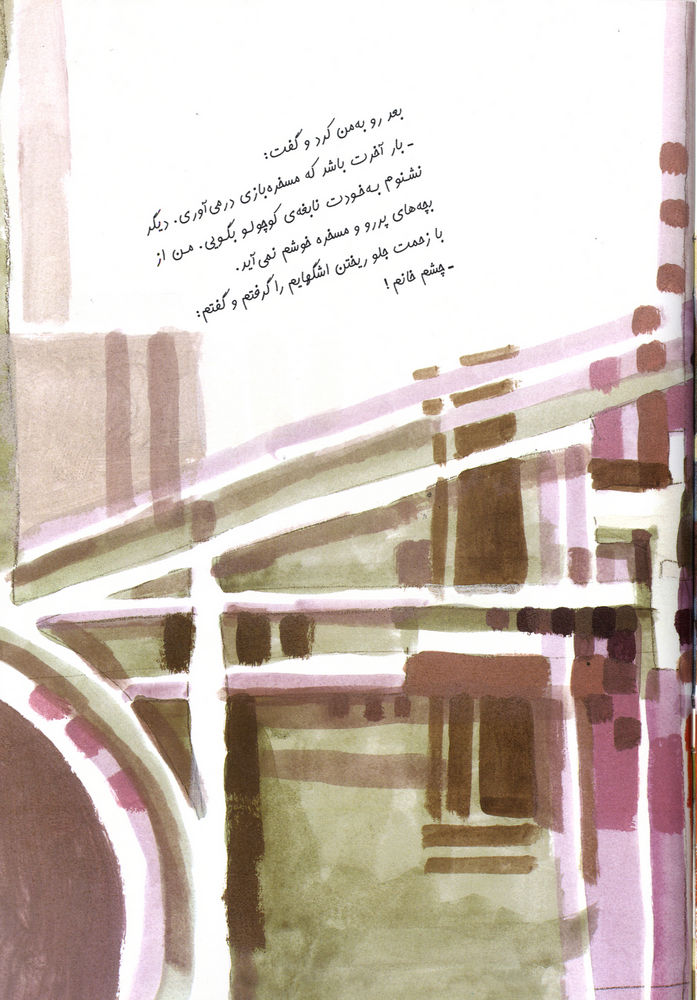 بعد رو به‌من کرد و گفت:
ـ بار آخرت باشد که مسخره‌بازی درمی‌آوری. دیگر
نشنوم به‌خودت نابغه‌ی کوچولو بگویی. من از
بچه‌های پررو و مسخره خوشم نمی‌آید.
با زحمت جلو ریختن اشکهایم را گرفتم و گفتم:
ـ چشم خانم!